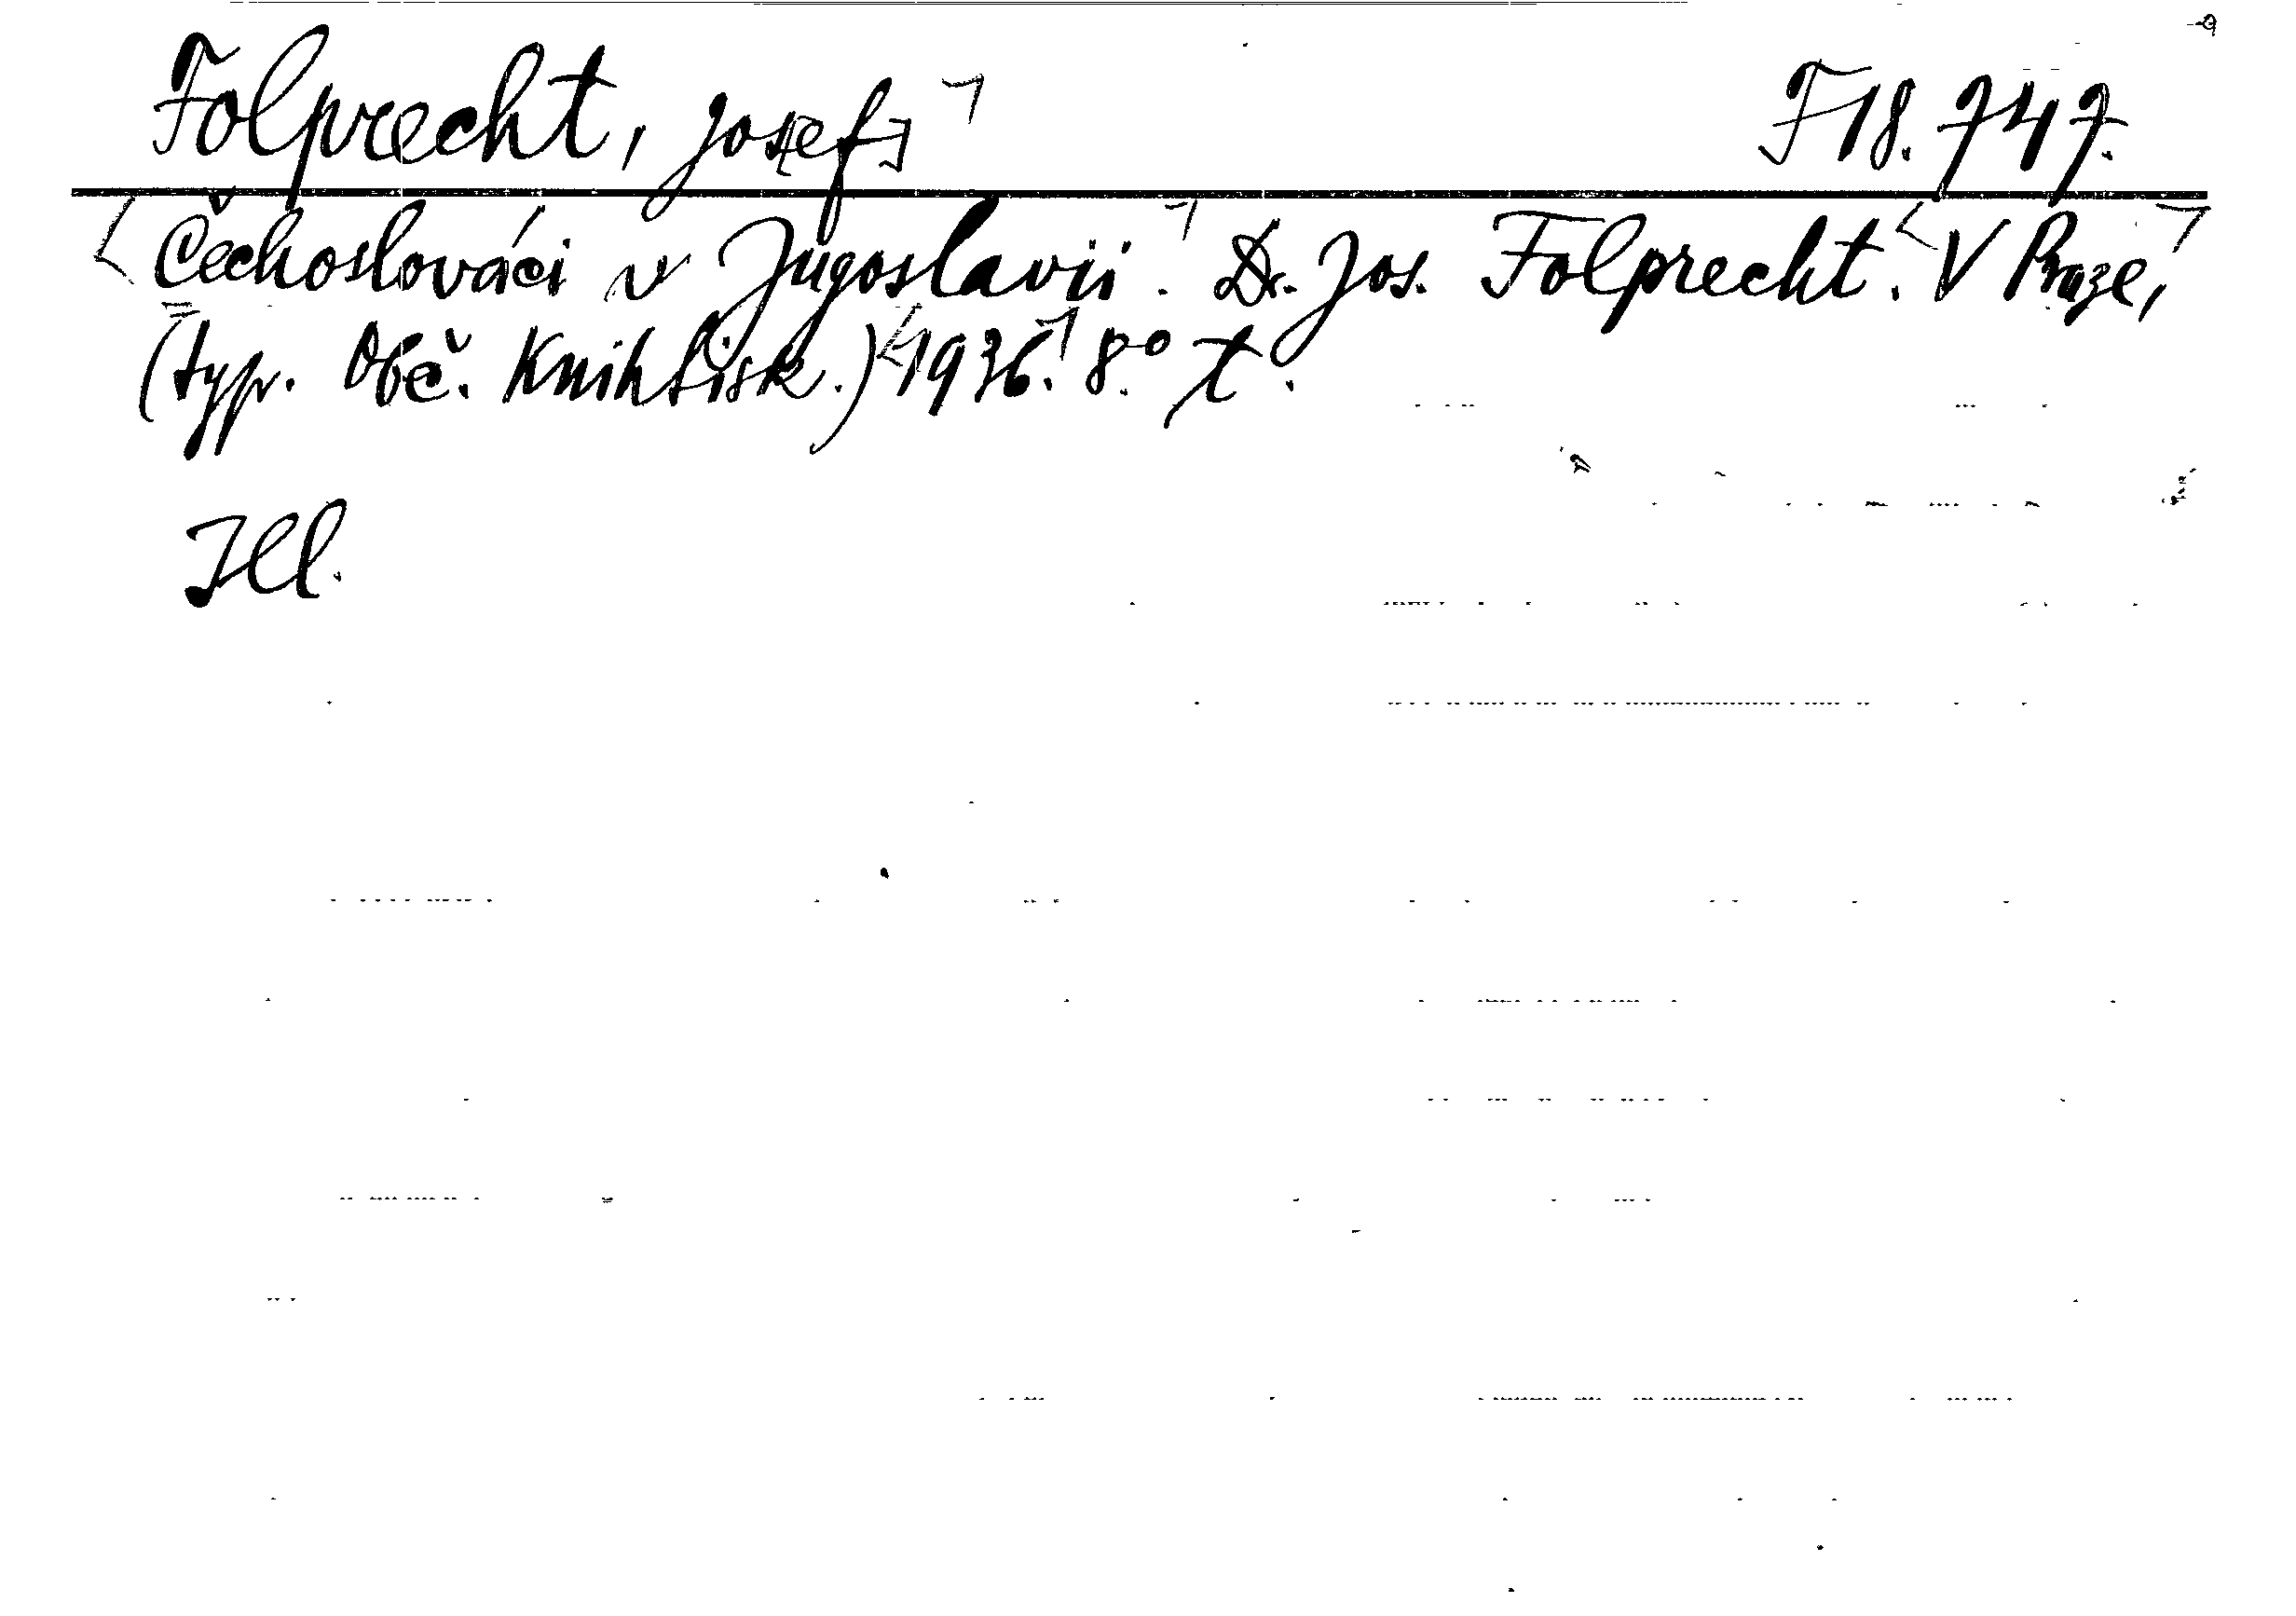 Folprecht, Jos[ef] F 18.747.
Čechoslováci v Jugoslavii. Dr. Jos. Folprecht. V Praze,
(typ. Obč. Knihtisk.) 1936. 8.°
Ill.